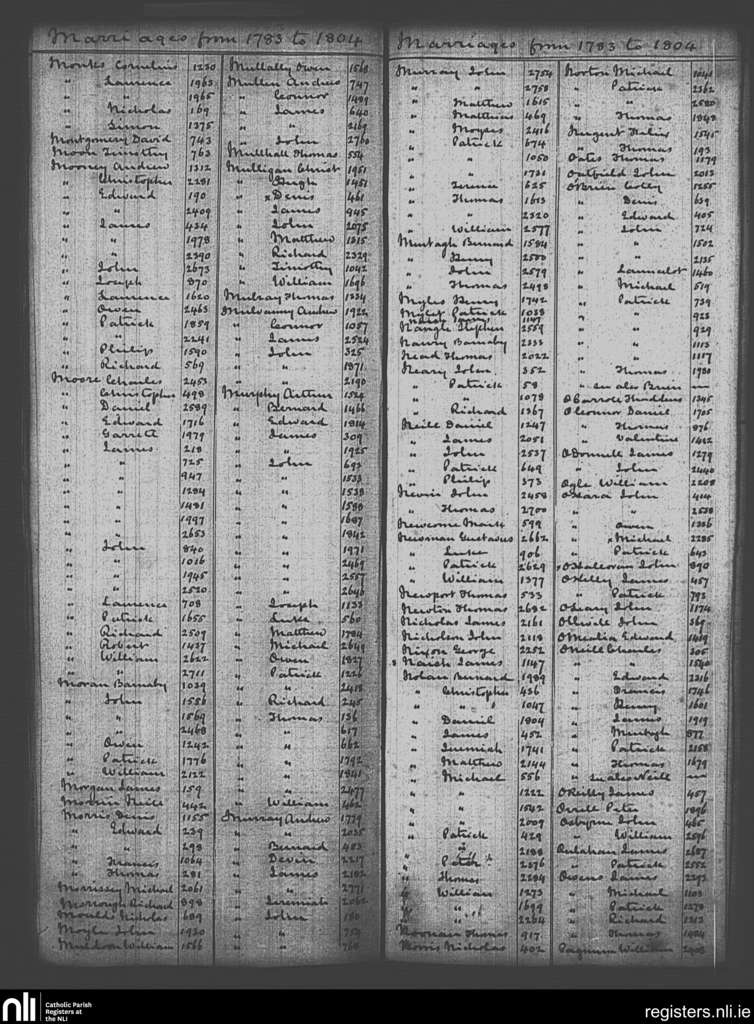 Marriages from 1783 to 1804
Monks Cornelius 1230
" Laurence 1963
" " 1965
" Nicholas 169
" Simon 1375
Montgomery David 743
Moon Timothy 763
Mooney Andrew 1312
" Christopher 2281
" Edward 190
" " 2409
" James 434
" " 1978
" " 2390
" John 2673
" Joseph 870
" Laurence 1620
" Owen 2463
" Patrick 1859
" " 2241
" Philip 1590
" Richard 569
Moore Charles 2453
" Christopher 498
" Daniel 2589
" Edward 1716
" Garrett 1979
" James 218
" " 725
" " 947
" " 1284
" " 1481
" " 1997
" " 2653
" John 840
" " 1016
" " 1945
" " 2520
" Laurence 708
" Patrick 1655
" Richard 2509
" Robert 1437
" William 2622
" " 2711
Moran Barnaby 1039
" John 1556
" " 1569
" " 2468
" Owen 1242
" Patrick 1776
" William 2122
Morgan James 159
442
Morris Denis 1155
" Edward 239
" " 298
" Francis 1064
" Thomas 281
Morrissey Michael 2061
Morrough Richard 898
Moulds Nicholas 689
Moyle John 1920
Muldoon William 1566
Mullally Owen 1568
Mullen Andrew 747
" Connor 1499
" James 640
" " 2169
" John 2760
Mullhall Thomas 554
Mulligan Christr 1951
" Hugh 1451
" x Denis 461
" James 945
" John 2075
" Matthew 1315
" Richard 2329
" Timothy 1042
" William 1696
Mulray Thomas 1334
Mulvanny Andrew 1922
" Connor 1057
" James 2524
" John 325
" " 1871
" " 2190
Murphy Arthur 1524
" Bernard 1466
" Edward 1814
" James 309
" " 1925
" John 693
" " 1533
" " 1538
" " 1588
" " 1687
" " 1842
" " 1971
" " 2469
" " 2557
" " 2646
" Joseph 1133
" Luke 560
" Matthew 1784
" Michael 2649
" Owen 1827
" Patrick 1226
" " 2418
" Richard 245
" Thomas 136
" " 617
" " 662
" " 1792
" " 1841
" " 2477
" William 462
Murray Andrew 1779
" " 2035
" Bernard 483
" Devin 2217
" James 2182
" " 2771
" Jeremiah 2062
" John 180
" " 759
" " 760
Marriages from 1783 to 1804
Murray John 2754
" " 2758
" Matthew 1615
" Matthias 469
" Moyses 2416
" Patrick 674
" " 1050
" " 1731
" Terence 625
" Thomas 1613
" " 2320
" William 2577
Murtagh Bernard 1584
" Henry 2580
" John 2579
" Thomas 2498
Myles Henry 1742
Mylet Patrick 1038
1147
Nangle Stephen 2559
Nanry Barnaby 2333
Nead Thomas 2022
Neary John 352
" Patrick 58
" " 1078
" Richard 1367
Neill Daniel 1247
" James 2051
" John 2537
" Patrick 649
" Philip 373
Nevin John 2458
" Thomas 2700
Newcome Mark 599
Newman Gustavus 2662
" Luke 906
" Patrick 2629
" William 1377
Newport Thomas 533
Newton Thomas 2682
Nicholas James 2161
Nicholson John 2118
Nixon George 2252
Naish James 1147
Nolan Bernard 1989
" Christopher 436
" " 1047
" Daniel 1804
" James 452
" Jeremiah 1741
" Matthew 2144
" Michael 556
" " 1222
" " 1542
" " 2009
" Patrick 429
" " 2188
" Peter 2276
" Thomas 2284
" William 1273
" " 1699
" " 2264
Noonan Thomas 917
Norris Nicholas 402
Norton Michael 1041
" Patrick 2362
" " 2580
" Thomas 1843
Nugent Felix 1545
" Thomas 193
Oates Thomas 1179
Oatfield John 2013
O'Brien Corley 1255
" Denis 639
" Edward 405
" John 724
" " 1502
" " 2135
" Launcelot 1460
" Michael 519
" Patrick 739
" " 923
" " 929
" " 1113
" " 1117
" Thomas 1980
" see also Brien —
O'Carroll Thaddeus 1345
O'Connor Daniel 1705
" Thomas 876
" Valentine 1412
O'Donnell James 1279
" John 2440
Ogle William 2208
O'Hara John 414
" " 2538
" Owen 1386
" x Michael 2285
" Patrick 643
x O'Halloran John 890
O'Kelly James 457
" Patrick 793
O'Leary John 1174
Ollwill John 369
O'Mealia Edward 1419
O'Neill Charles 305
" " 1540
" Edward 2316
" Francis 1746
" Henry 1601
" James 1919
" Murtagh 877
" Patrick 2158
" Thomas 1679
" see also Neill —
O'Reilly James 457
Orrell Peter 1896
Osbyrne John 465
" William 2596
Oulahan James 2687
" Patrick 2552
Owens James 2293
" Michael 1103
" Patrick 1278
" Richard 1212
" Thomas 1484
William 2408
nli
Catholic Parish
Registers at
the NLI
registers.nli.ie